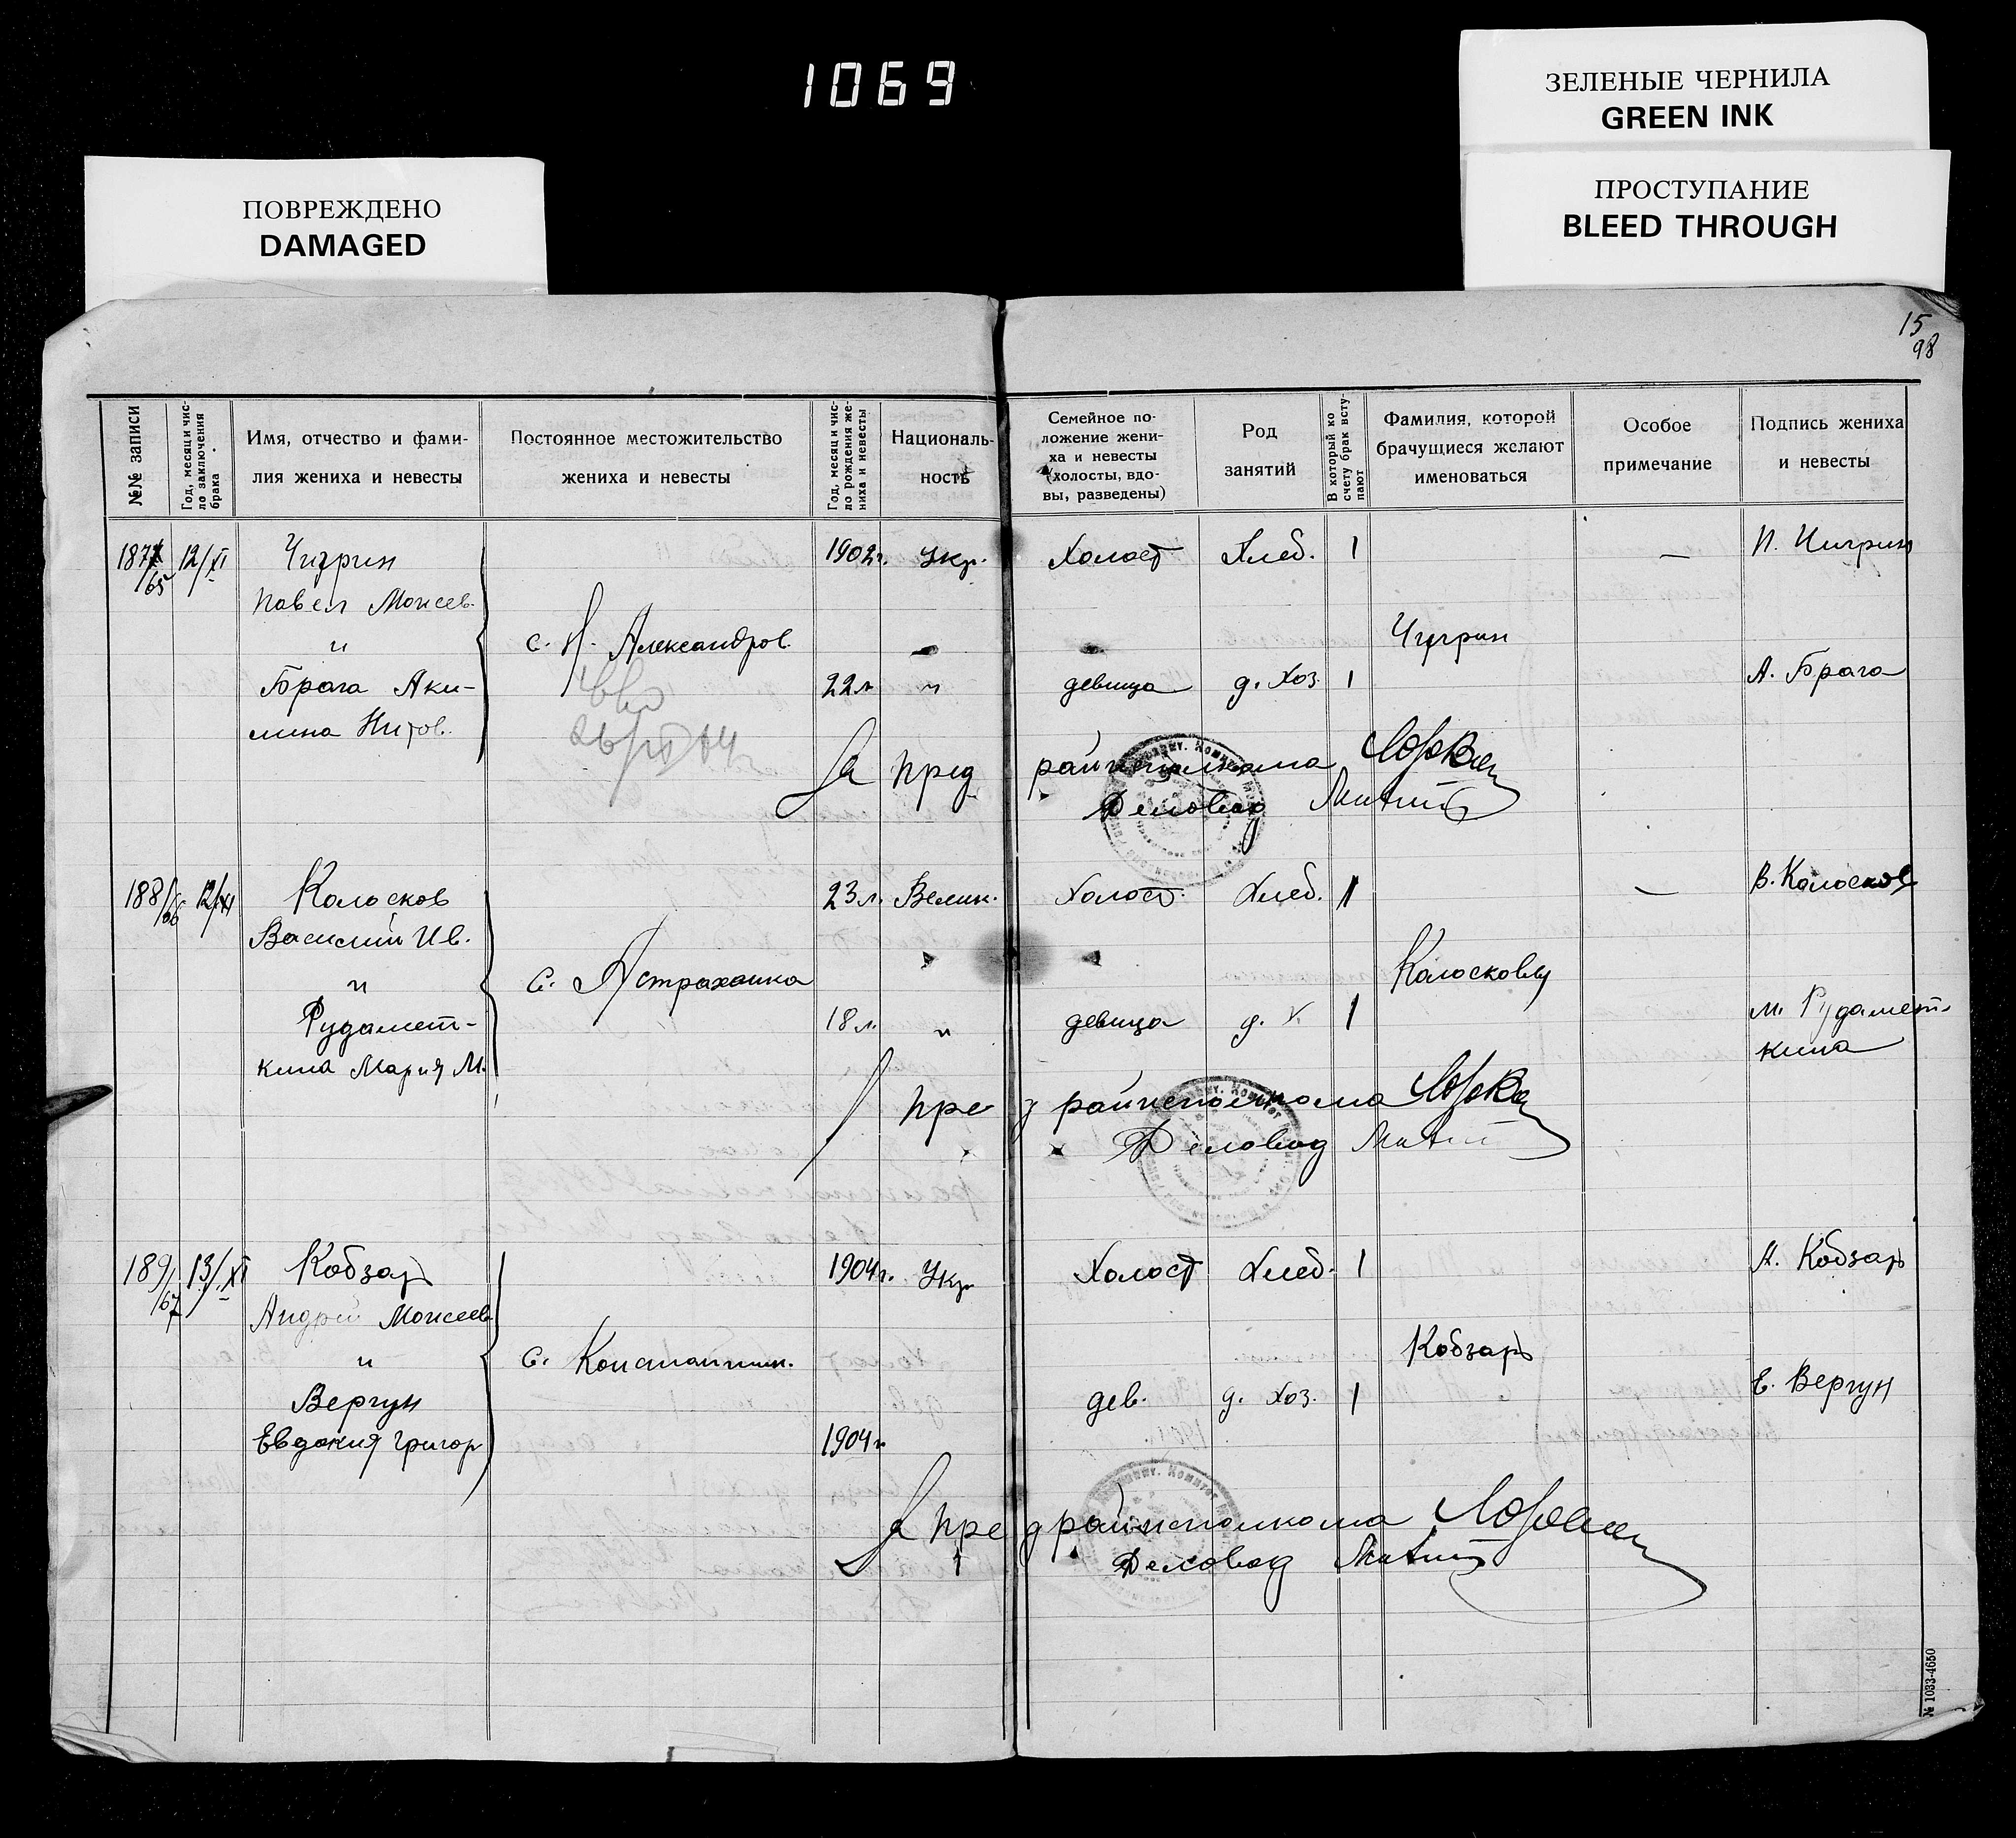 1069
ЗЕЛЕНЫЕ ЧЕРНИЛА
GREEN INK
ПРОСТУПАНИЕ
BLEED THROUGH
ПОВРЕЖДЕНО
DAMAGED
15
98
№№ записи
Год, месяц и чис-
ло заключения
брака
Имя, отчество и фами-
лия жениха и невесты
Постоянное местожительство
жениха и невесты
Год, месяц и чис-
ло рождения же-
ниха и невесты
Националь-
ность
Семейное по-
ложение жени-
ха и невесты
(холосты, вдо-
вы, разведены)
Род
занятий
В который ко
счету брак всту-
пают
Фамилия, которой
брачущиеся желают
именоваться
Особое
примечание
Подпись жениха
и невесты
187/65 12/XI Чигрин 1902г. Укр. Холост Хлеб. 1 — П. Чигрин
Павел Моисеев.
и с. Н. Александров. Чигрин
Брага Аки- 22л " девица д. хоз. 1 А. Брага
лина Титов.
За пред райисполкома
Деловод
188/66 12/XI Колосков 23 л. Велик. Холост. Хлеб. 1 — В. Колосков
Василий Ив.
и с. Астраханка Колосковы
Рудамет- 18 л. " девица д. х. 1 М. Рудамет-
кина Мария М. кина
пред райисполкома
Деловод
189/67 13/XI Кобзарь 1904г. Укр. Холост Хлеб. 1 А. Кобзарь
Андрей Моисеев
и с. Константин. Кобзарь
Вергун дев. д. хоз. 1 Е. Вергун
Евдокия Григор 1904г
За пред райисполкома
Деловод
№ 1033-4650